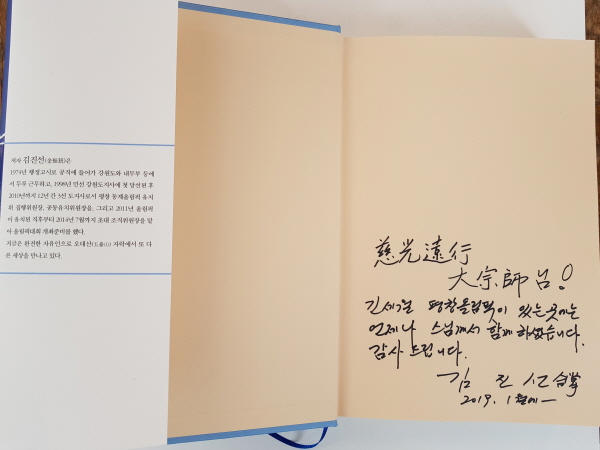 저자 김진선(金振兟)은
1974년 행정고시로 공직에 들어가 강원도와 내무부 등에
서 두루 근무하고, 1998년 민선 강원도지사에 첫 당선된 후
2010년까지 12년 간 3선 도지사로서 평창 동계올림픽 유치
위 집행위원장, 공동유치위원장을, 그리고 2011년 올림픽
이 유치된 직후부터 2014년 7월까지 초대 조직위원장을 맡
아 올림픽대회 개최준비를 했다.
지금은 완전한 자유인으로 오대산(五臺山) 자락에서 또 다
른 세상을 만나고 있다.
慈光遠行
大宗師님!
긴세월 평창올림픽이 있는곳에는
언제나 스님께서 함께 하셨습니다.
감사 드립니다.
김 진 선 合掌
2019. 1월에